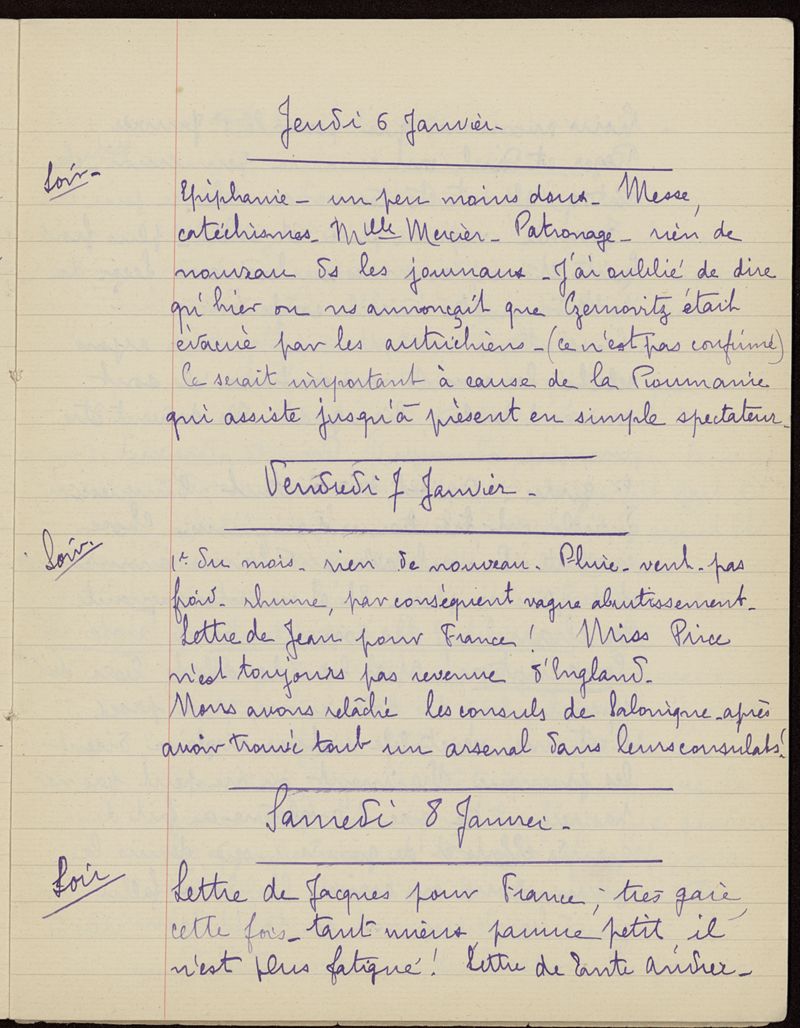 Jeudi 6 Janvier -
Soir -
Epiphanie - un peu moins doux - Messe,
catéchismes - Mlle Mercier - Patronage - rien de
nouveau ds les journaux - J'ai oublié de dire
qu'hier on ns annonçait que Czernovitz était
évacué par les autrichiens - (ce n'est pas confirmé)
Ce serait important à cause de la Roumanie
qui assiste jusqu'à présent en simple spectateur -
Vendredi 7 Janvier -
Soir -
1er du mois - rien de nouveau - Pluie - vent - pas
froid - rhume, par conséquent vague abrutissement -
Lettre de Jean pour France ! Miss Price
n'est toujours pas revenue d'England -
Nous avons relâché les consuls de Salonique - après
avoir trouvé tout un arsenal dans leurs consulats !
Samedi 8 Janvier -
Soir
Lettre de Jacques pour France, très gaie,
cette fois - tant mieux, pauvre petit, il
n'est plus fatigué ! Lettre de Tante Andrez -